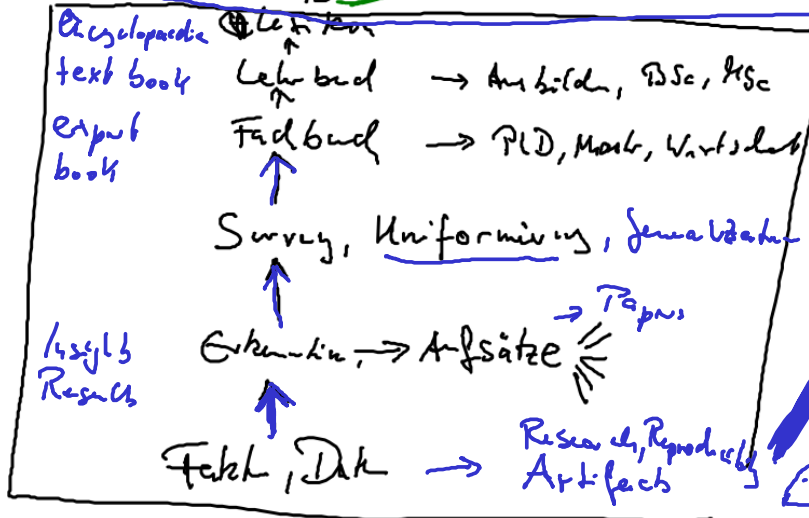 Encyclopaedie Lexikon
text book Lehrbuch → Ausbildn, BSc, MSc
expert book Fachbuch → PhD, Master, Wirtschaft
Survey, Uniformierung, Generalization
Insights Research Erkenntnis, → Aufsätze → Papers
Fakten, Daten → Research, Reproducibility
Artifacts